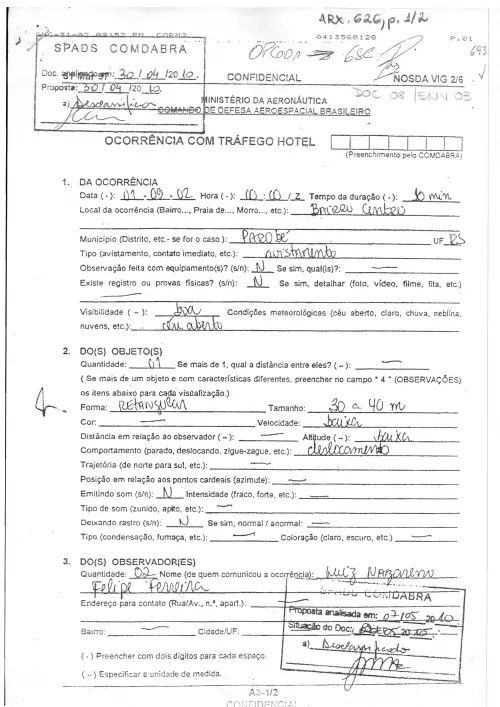 ARX. 626, p. 1/2
0413560120 P.01
SPADS COMDABRA
693
Doc. analisado em: 30 / 04 /20 10.
CONFIDENCIAL
NOSDA VIG 2/6
Proposta: 30 / 04 /20 10.
DOC 08 /ENV 03
a) Desclassificar
MINISTÉRIO DA AERONÁUTICA
COMANDO DE DEFESA AEROESPACIAL BRASILEIRO
OCORRÊNCIA COM TRÁFEGO HOTEL
(Preenchimento pelo COMDABRA)
1. DA OCORRÊNCIA
Data (-): 01 - 09 - 02 Hora (-): / Z Tempo da duração (-): 10 min
Local da ocorrência (Bairro..., Praia de..., Morro..., etc.): BAIRRO Centro
Município (Distrito, etc.- se for o caso.): PAROBÉ UF RS
Tipo (avistamento, contato imediato, etc.): avistamento
Observação feita com equipamento(s)? (s/n): N Se sim, qual(is)?: —
Existe registro ou provas físicas? (s/n): N Se sim, detalhar (foto, vídeo, filme, fita, etc.)
—
Visibilidade ( – ): boa Condições meteorológicas (céu aberto, claro, chuva, neblina,
nuvens, etc.): céu aberto
2. DO(S) OBJETO(S)
Quantidade: 01 Se mais de 1, qual a distância entre eles? ( – ): —
( Se mais de um objeto e com características diferentes, preencher no campo " 4 " (OBSERVAÇÕES)
os itens abaixo para cada visualização.)
Forma: RETANGULAR Tamanho: 30 a 40 m
Cor: — Velocidade: baixa
Distância em relação ao observador ( – ): — Altitude ( – ): baixa
Comportamento (parado, deslocando, zigue-zague, etc.): deslocamento
Trajetória (de norte para sul, etc.): —
Posição em relação aos pontos cardeais (azimute): —
Emitindo som (s/n): N Intensidade (fraco, forte, etc.): —
Tipo de som (zunido, apito, etc.): —
Deixando rastro (s/n): N Se sim, normal / anormal: —
Tipo (condensação, fumaça, etc.): — Coloração (claro, escuro, etc.): —
3. DO(S) OBSERVADOR(ES)
Quantidade: 02 Nome (de quem comunicou a ocorrência): Luiz Nazareno
Felipe Ferreira
SPADS COMDABRA
Endereço para contato (Rua/Av., n.º, apart.): —
Proposta analisada em: 07/05 2010
Bairro: — Cidade/UF:
Situação do Doc: 2010
a) Desclassificado
( - ) Preencher com dois dígitos para cada espaço.
( – ) Especificar a unidade de medida.
A3-1/2
CONFIDENCIAL